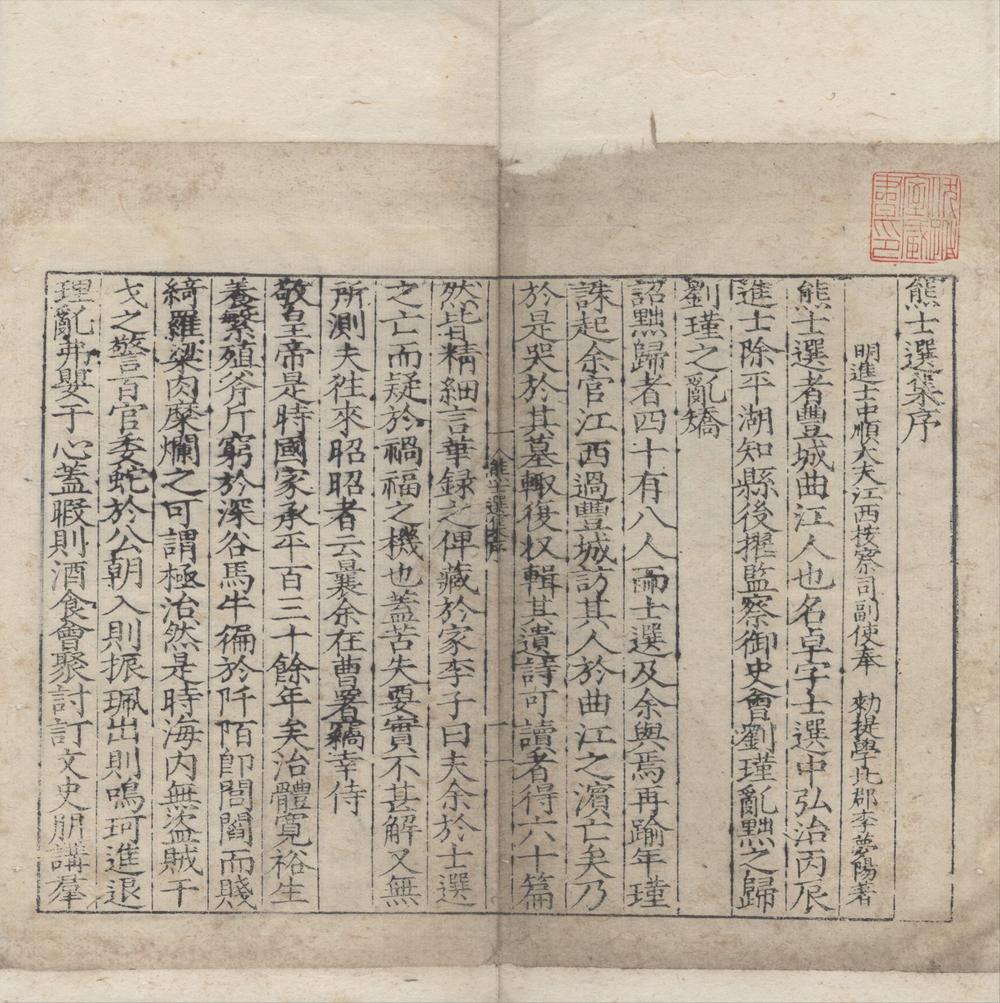 熊士選集序
明進士中順大夫江西按察司副使奉　勑提學北郡李夢陽著
熊士選者豐城曲江人也名卓字士選中弘治丙辰
進士除平湖知縣後擢監察御史會劉瑾亂黜之歸
劉瑾之亂矯
詔黜歸者四十有八人而士選及余與焉再踰年瑾
誅起余官江西過豐城訪其人於曲江之濱亡矣乃
於是哭於其墓輙復收輯其遺詩可讀者得六十篇
熊士選集序
一
然皆精細言華録之俾藏於家李子曰夫余於士選
之亡而疑於禍福之機也蓋苦失要實不甚解又無
所測夫徃來昭昭者云曩余在曹署竊幸侍
敬皇帝是時國家承平百三十餘年矣治體寛裕生
養繁殖斧斤窮於深谷馬牛徧於阡陌即閭閻而賤
綺羅梁肉糜爛之可謂極治然是時海内無盜賊干
戈之警百官委蛇於公朝入則振珮出則鳴珂進退
理亂弗嬰于心蓋暇則酒食會聚討訂文史朋講羣